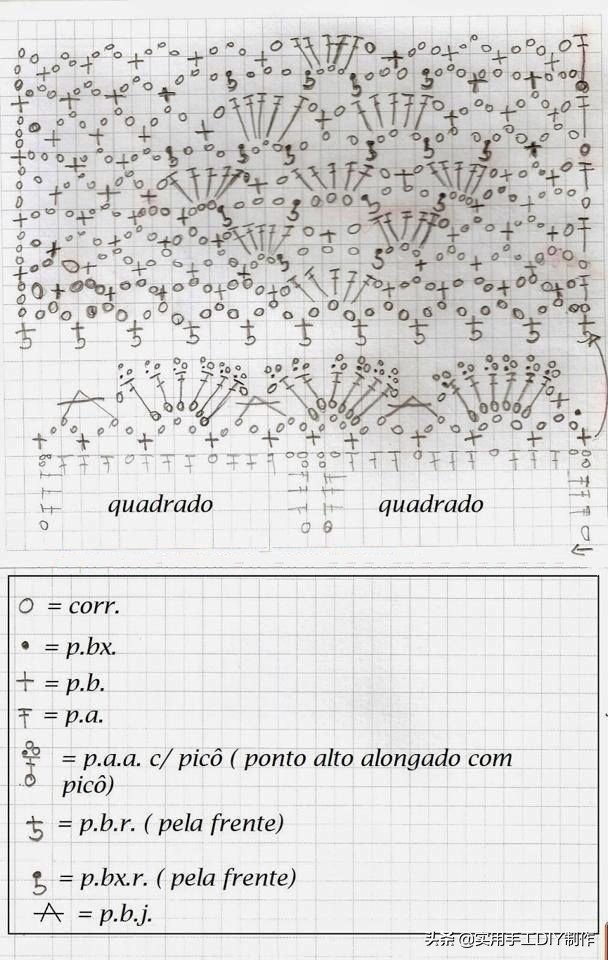 quadrado
quadrado
= corr.
= p.bx.
= p.b.
= p.a.
= p.a.a. c/ picô ( ponto alto alongado com
picô)
= p.b.r. ( pela frente)
= p.bx.r. ( pela frente)
= p.b.j.
头条 @实用手工DIY制作